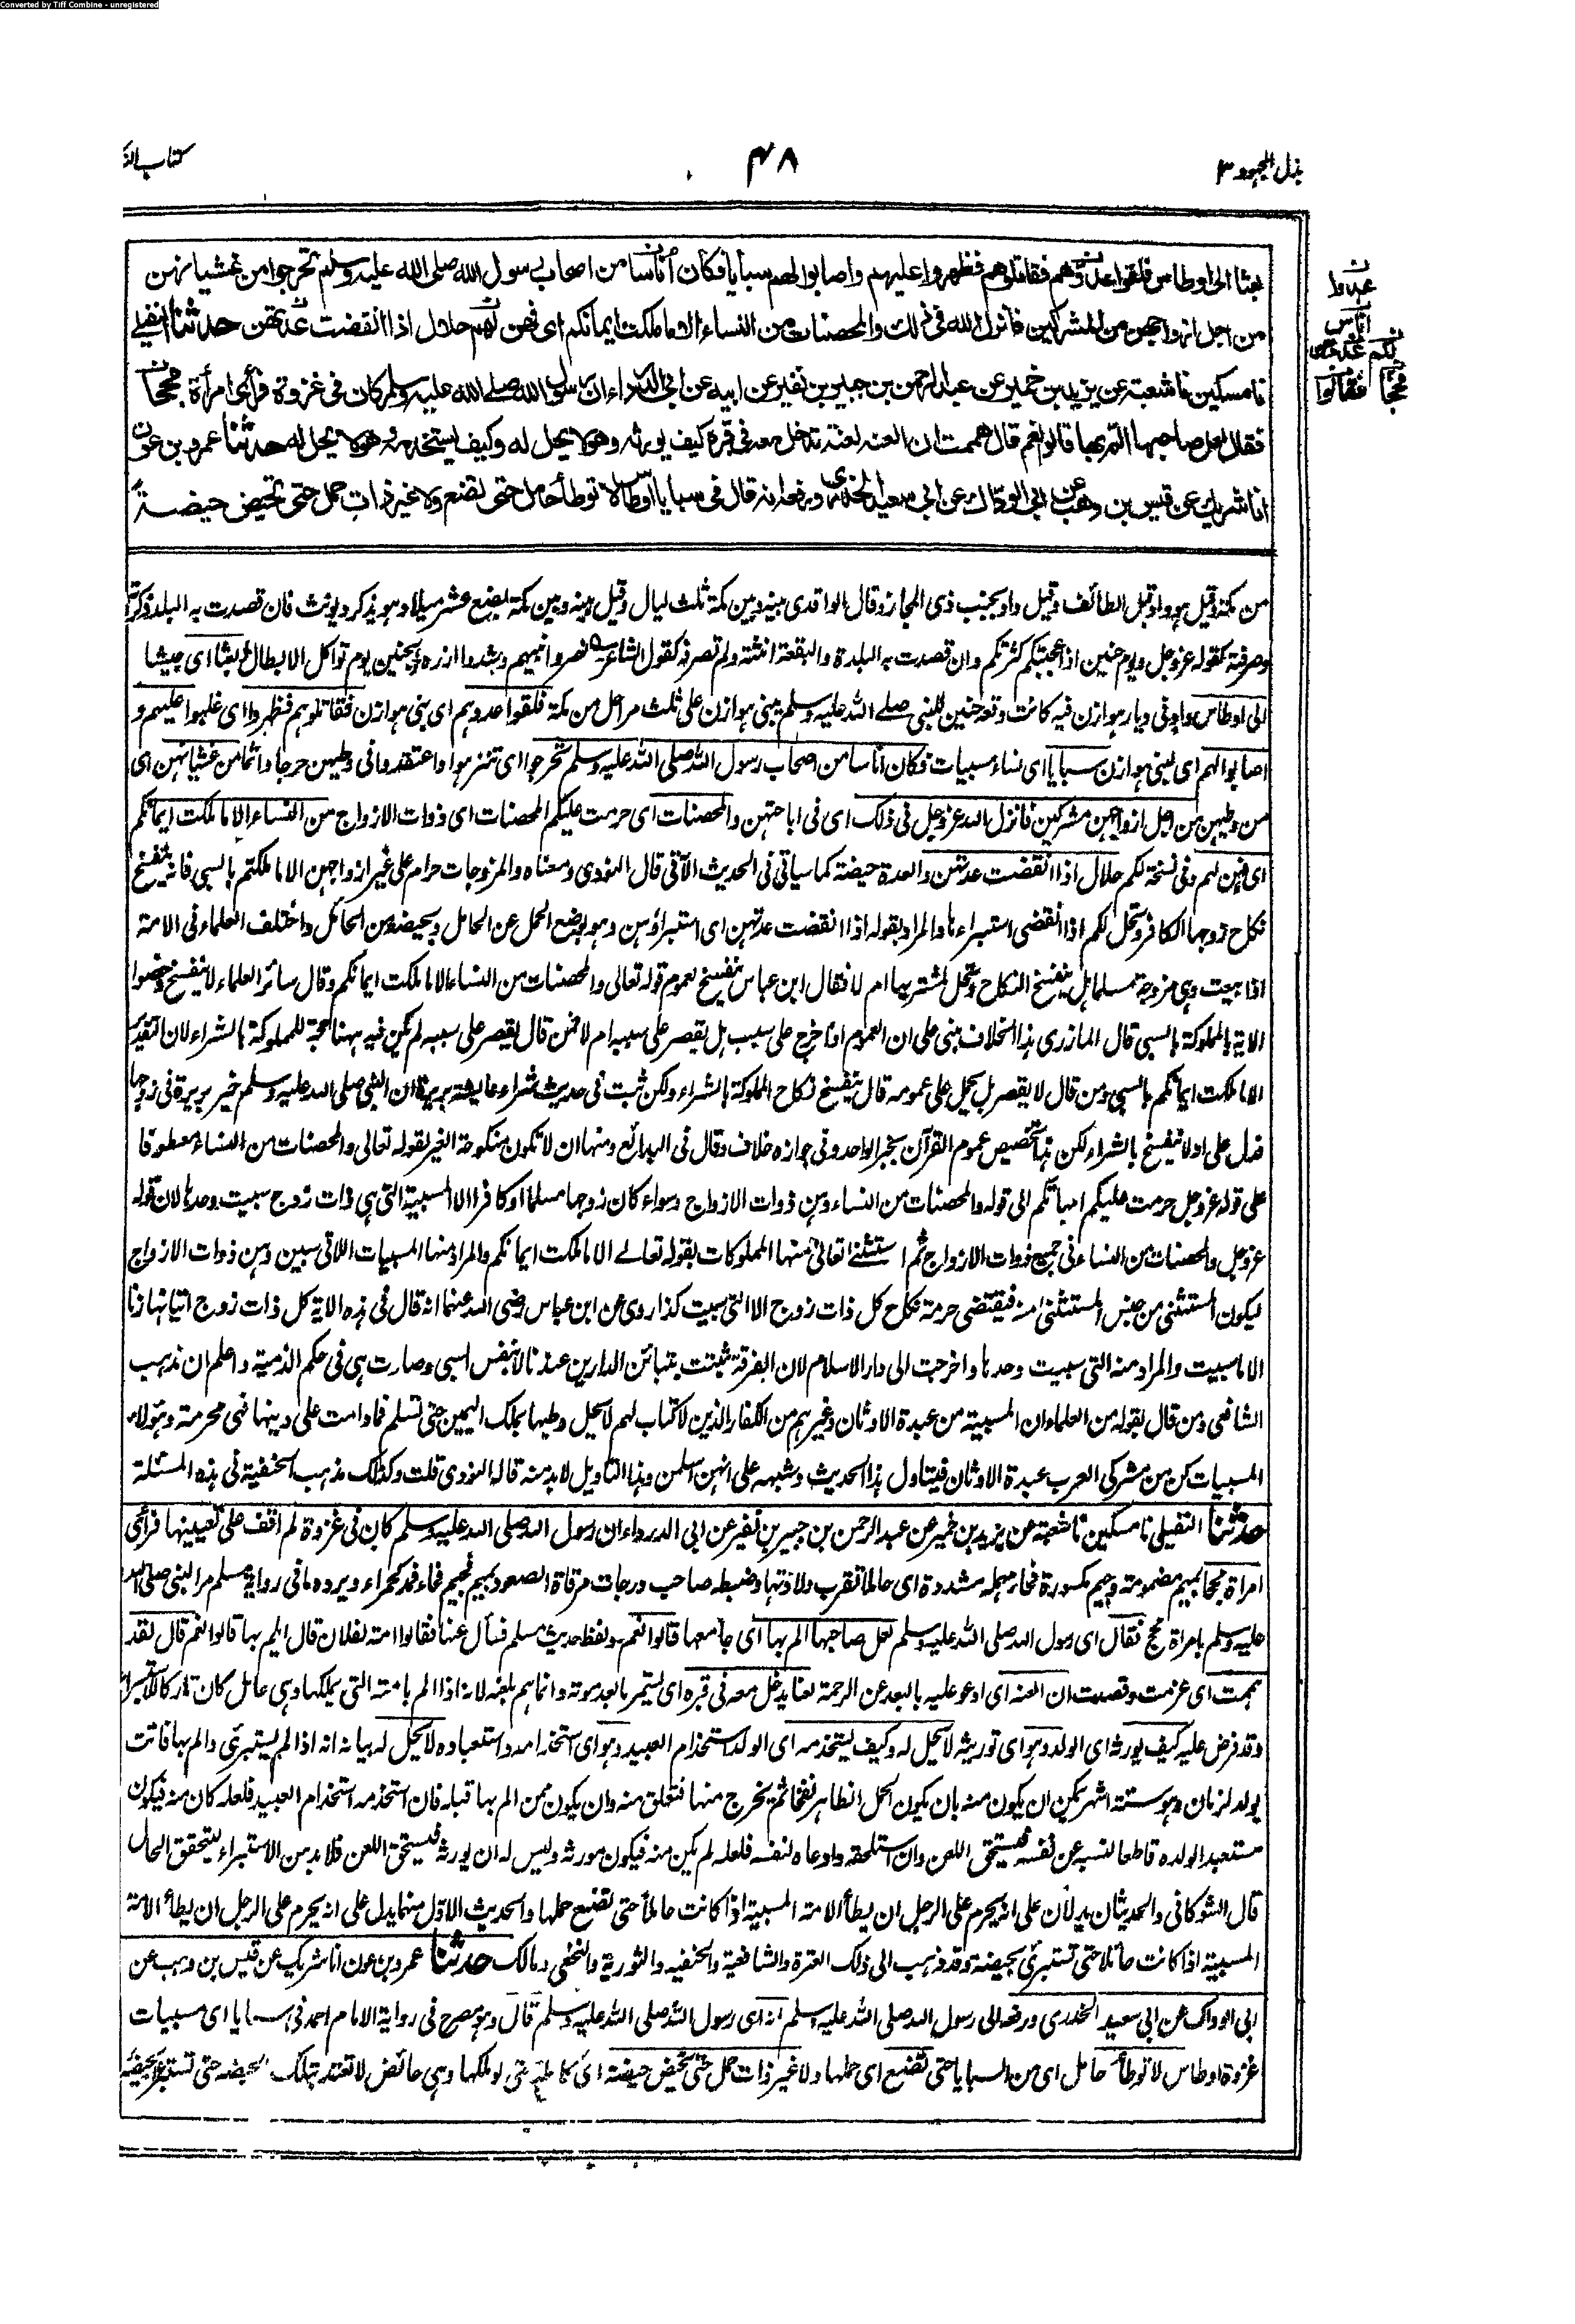 Converted by Tiff Combine - unregistered
بذل المجهود ٣
٤٨
كتاب
بعثا الى اوطاس فلقوا عدوهم فقاتلوهم فظهروا عليهم واصابوا لهم سبايا فكان اناسا من اصحاب رسول الله صلى الله عليه وسلم تحرجوا من غشيانهن
من اجل ازواجهن من المشركين فانزل الله فى ذلك والمحصنات من النساء الا ما ملكت ايمانكم اى فهن لهم حلال اذا انقضت عدتهن حدثنا النفيلى
نا مسكين نا شعبة عن يزيد بن خمير عن عبد الرحمن بن جبير بن نفير عن ابيه عن ابى الدرداء ان رسول الله صلى الله عليه وسلم كان فى غزوة فرأى امرأة مجحا
فقال لعل صاحبها الم بها قالوا نعم قال هممت ان العنه لعنة تدخل معه فى قبره كيف يورثه وهو لا يحل له وكيف يستخدمه وهو لا يحل له حدثنا عمرو بن عون
انا شريك عن قيس بن وهب عن ابى الوداك عن ابى سعيد الخدرى ورفعه انه قال فى سبايا اوطاس لا توطأ حامل حتى تضع ولا غير ذات حمل حتى تحيض حيضة
عدوا
اناس
لكم عدتهن
مجحا فقالوا
من مكة وقيل هو واد قبل الطائف وقيل واد بجنب ذى المجاز وقال الواقدى بينه وبين مكة ثلث ليال وقيل بينه وبين مكة بضع عشر ميلا وهو يذكر ويونث فان قصدت به البلد ذكرته
وصرفته كقوله عز وجل ويوم حنين اذ اعجبتكم كثرتكم وان قصدت به البلدة والبقعة انثته ولم تصرفه كقول الشاعر نصروا نبيهم وشدوا ازره بحنين يوم تواكل الابطال بعثا اى جيشا
الى اوطاس واد فى ديار هوازن فيه كانت وقعة حنين للنبى صلى الله عليه وسلم ببنى هوازن على ثلث مراحل من مكة فلقوا عدوهم اى بنى هوازن فقاتلوهم فظهروا اى غلبوا عليهم و
اصابوا لهم اى لبنى هوازن سبايا اى نساء مسبيات فكان اناسا من اصحاب رسول الله صلى الله عليه وسلم تحرجوا اى تنزهوا واعتقدوا فى وطيهن حرجا واثما من غشيانهن اى
من وطيهن من اجل ازواجهن مشركين فانزل الله عز وجل فى ذلك اى فى اباحتهن والمحصنات اى حرمت عليكم المحصنات اى ذوات الازواج من النساء الا ما ملكت ايمانكم
اى فهن لهم وفى نسخة لكم حلال اذا انقضت عدتهن والعدة حيضة كما سياتى فى الحديث الآتى قال النووى ومعناه والمزوجات حرام على غير ازواجهن الا ما ملكتم بالسبى فانه ينفسخ
نكاح زوجها الكافر وتحل لكم اذا انقضى استبراءها والمراد بقوله اذا انقضت عدتهن اى استبراؤهن وهو بوضع الحمل عن الحامل وبحيضة من الحائل واختلف العلماء فى الامة
اذا بيعت وهى مزوجة مسلما هل ينفسخ النكاح وتحل لمشتريها ام لا فقال ابن عباس ينفسخ لعموم قوله تعالى والمحصنات من النساء الا ما ملكت ايمانكم وقال سائر العلماء لا ينفسخ وخصوا
الاية بالمملوكة بالسبى قال المازرى هذا الخلاف مبنى على ان العموم اذا خرج على سبب هل يقصر على سببه ام لا فمن قال يقصر على سببه لم يكن فيه ههنا حجة للمملوكة بالشراء لان التقدير
الا ما ملكت ايمانكم بالسبى ومن قال لا يقصر بل يحمل على عمومه قال ينفسخ نكاح المملوكة بالشراء ولكن ثبت فى حديث شراء عايشة بريرة ان النبى صلى الله عليه وسلم خير بريرة فى زوجها
فدل على انه لا ينفسخ بالشراء لكن هذا تخصيص عموم القرآن بخبر الواحد وفى جوازه خلاف وقال فى البدائع ومنها ان لا تكون منكوحة الغير لقوله تعالى والمحصنات من النساء معطوفا
على قوله عز وجل حرمت عليكم امهاتكم الى قوله والمحصنات من النساء وهن ذوات الازواج وسواء كان زوجها مسلما او كافرا الا المسبية التى هى ذات زوج سبيت وحدها لان قوله
عز وجل والمحصنات من النساء فى جميع ذوات الازواج ثم استثنى تعالى منها المملوكات بقوله تعالى الا ما ملكت ايمانكم والمراد منها المسبيات اللاتى سبين وهن ذوات الازواج
ليكون المستثنى من جنس المستثنى منه فيقتضى حرمة نكاح كل ذات زوج الا التى سبيت كذا روى عن ابن عباس رضى الله عنهما انه قال فى هذه الاية كل ذات زوج اتيانها زنا
الا ما سبيت والمراد منه التى سبيت وحدها واخرجت الى دار الاسلام لان الفرقة ثبتت بتباين الدارين عندنا لا بنفس السبى وصارت هى فى حكم الذمية واعلم ان مذهب
الشافعى ومن قال بقوله من العلماء ان المسبية من عبدة الاوثان وغيرهم من الكفار الذين لا كتاب لهم لا يحل وطيها بملك اليمين حتى تسلم فما دامت على دينها فهى محرمة وهؤلاء
المسبيات كن من مشركى العرب عبدة الاوثان فيتاول هذا الحديث وشبهه على انهن اسلمن وهذا التاويل لا بد منه قاله النووى قلت وكذلك مذهب الحنفية فى هذه المسئلة
حدثنا النفيلى نا مسكين نا شعبة عن يزيد بن خمير عن عبد الرحمن بن جبير بن نفير عن ابى الدرداء ان رسول الله صلى الله عليه وسلم كان فى غزوة لم اقف على تعيينها فرأى
امراة مجحا بميم مضمومة وجيم مكسورة فحاء مهملة مشددة اى حاملا تقرب ولادتها وضبطه صاحب درجات مرقاة الصعود بميم فجيم فحاء فمد كحمراء ويرده ما فى رواية مسلم مر النبى صلى الله
عليه وسلم بامراة مجح فقال اى رسول الله صلى الله عليه وسلم لعل صاحبها الم بها اى جامعها قالوا نعم ولفظ حديث مسلم فسأل عنها فقالوا امة لفلان قال ايلم بها قالوا نعم قال لقد
هممت اى عزمت وقصدت ان العنه اى ادعو عليه بالبعد عن الرحمة لعنا يدخل معه فى قبره اى يستمر بابعد موته وانما هم بلعنه لانه اذا الم بامته التى يملكها وهى حامل كان تاركا للاستبراء
وقد فرض عليه كيف يورثه اى الولد وهو اى توريثه لا يحل له وكيف يستخدمه اى الولد استخدام العبيد وهو اى استخدامه واستعباده لا يحل له بيانه انه اذا لم يستبرئ والم بها فاتت
بولد لزمان وهو ستة اشهر يمكن ان يكون منه بان يكون الحمل الظاهر نفخا ثم يخرج منها فتعلق منه وان يكون ممن الم بها قبله فان استخدمه استخدام العبيد فلعله كان منه فيكون
مستعبدا لولده قاطعا لنسبه عن نفسه فيستحق اللعن وان استلحقه وادعاه لنفسه فلعله لم يكن منه فيكون مورثه وليس له ان يورثه فيستحق اللعن فلا بد من الاستبراء ليتحقق الحال
قال الشوكانى والحديثان يدلان على انه يحرم على الرجل ان يطأ الامة المسبية اذا كانت حاملا حتى تضع حملها والحديث الاول منهما يدل على انه يحرم على الرجل ان يطأ الامة
المسبية اذا كانت حائلا حتى تستبرئ بحيضة وقد ذهب الى ذلك العترة والشافعية والحنفية والثورية والنخعى ومالك حدثنا عمرو بن عون انا شريك عن قيس بن وهب عن
ابى الوداك عن ابى سعيد الخدرى ورفعه الى رسول الله صلى الله عليه وسلم انه اى رسول الله صلى الله عليه وسلم قال وهو مصرح فى رواية الامام احمد فى سبايا اى مسبيات
غزوة اوطاس لا توطأ حامل اى من السبايا حتى تضع اى حملها ولا غير ذات حمل حتى تحيض حيضة اى كاملة حتى لو ملكها وهى حائض لا تعتد بتلك الحيضة حتى تستبرئ بحيضة